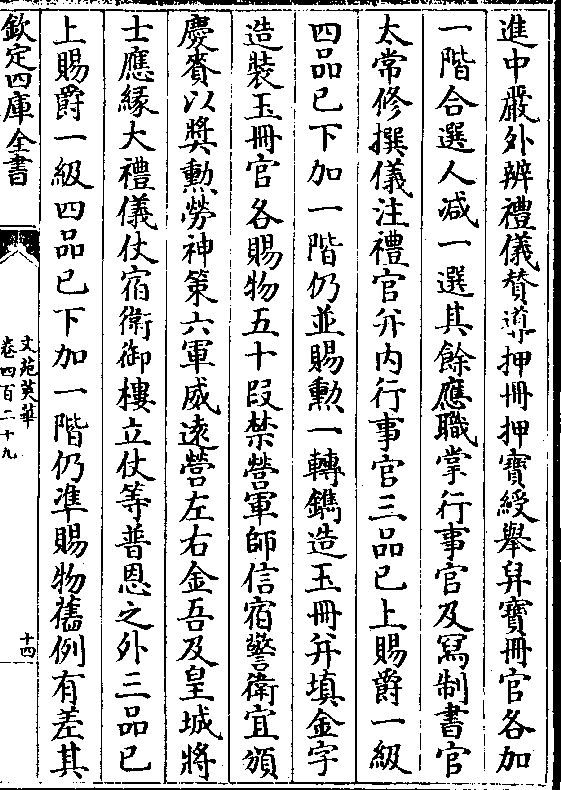 進中嚴外辨禮儀賛導押冊押寶綬舉舁寶冊官各加
一階合選人减一選其餘應職掌行事官及寫制書官
太常修撰儀注禮官并内行事官三品已上賜爵一級
四品已下加一階仍並賜勲一轉鐫造玉冊并填金字
造裝玉冊官各賜物五十段禁營軍師信宿警衛宜頒
慶賚以奬勲勞神策六軍威遠營左右金吾及皇城將
士應緣大禮儀仗宿衛御樓立仗等普恩之外三品已
上賜爵一級四品已下加一階仍準賜物舊例有差其
欽定四庫全書
文苑英華
卷四百二十九
十四